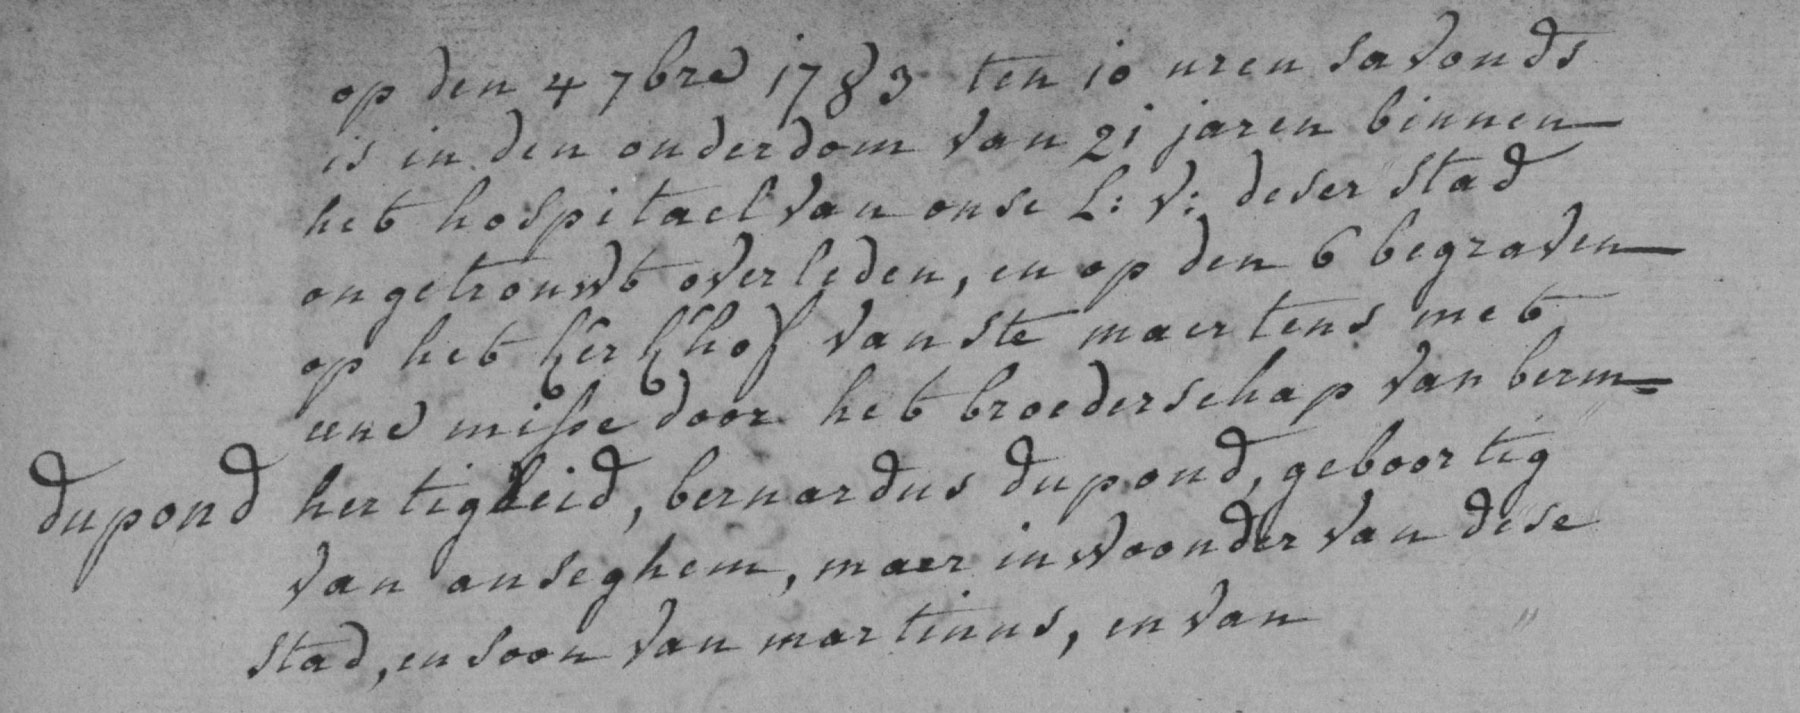 op den 4 7bre 1783 ten 10 uren savonds
is in den onderdom van 21 jaren binnen
het hospitael van onse L: V: deser stad
ongetrouwt overleden, en op den 6 begraven
op het kerkhof van ste maertens met
eene misse door het broederschap van berm=
dupond hertigheid, bernardus dupond, geboortig
van anseghem, maer inwoonder van dese
stad, en soon van martinus, en van